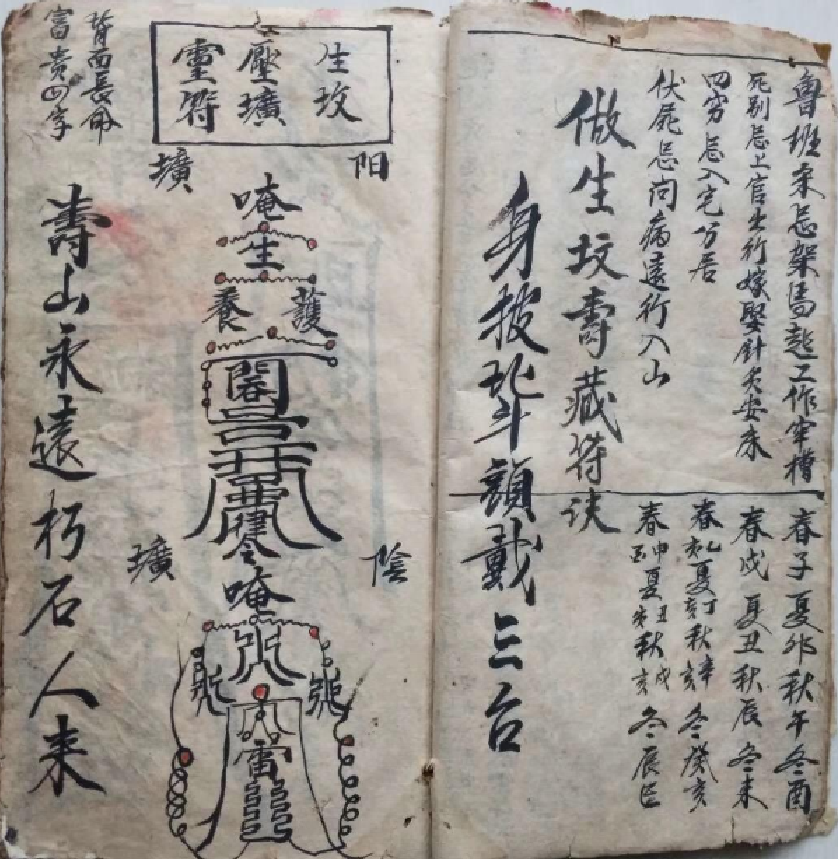 魯班杀忌架馬起工作牢槽
死别忌上官出行嫁娶針灸安床
四穷忌入宅分居
伏屍忌问病遠行入山
春子夏卯秋午冬酉
春戌夏丑秋辰冬未
春乙亥夏丁亥秋辛亥冬癸亥
春申酉夏丑秋戌亥冬辰巳
做生坟壽藏符诀
身披北斗頭戴三台
生坟
壓壙
靈符
阳
壙
唵
生
護
養
律令
唵
雷
陰
壙
背面長命
富贵四字
壽山永遠朽石人来